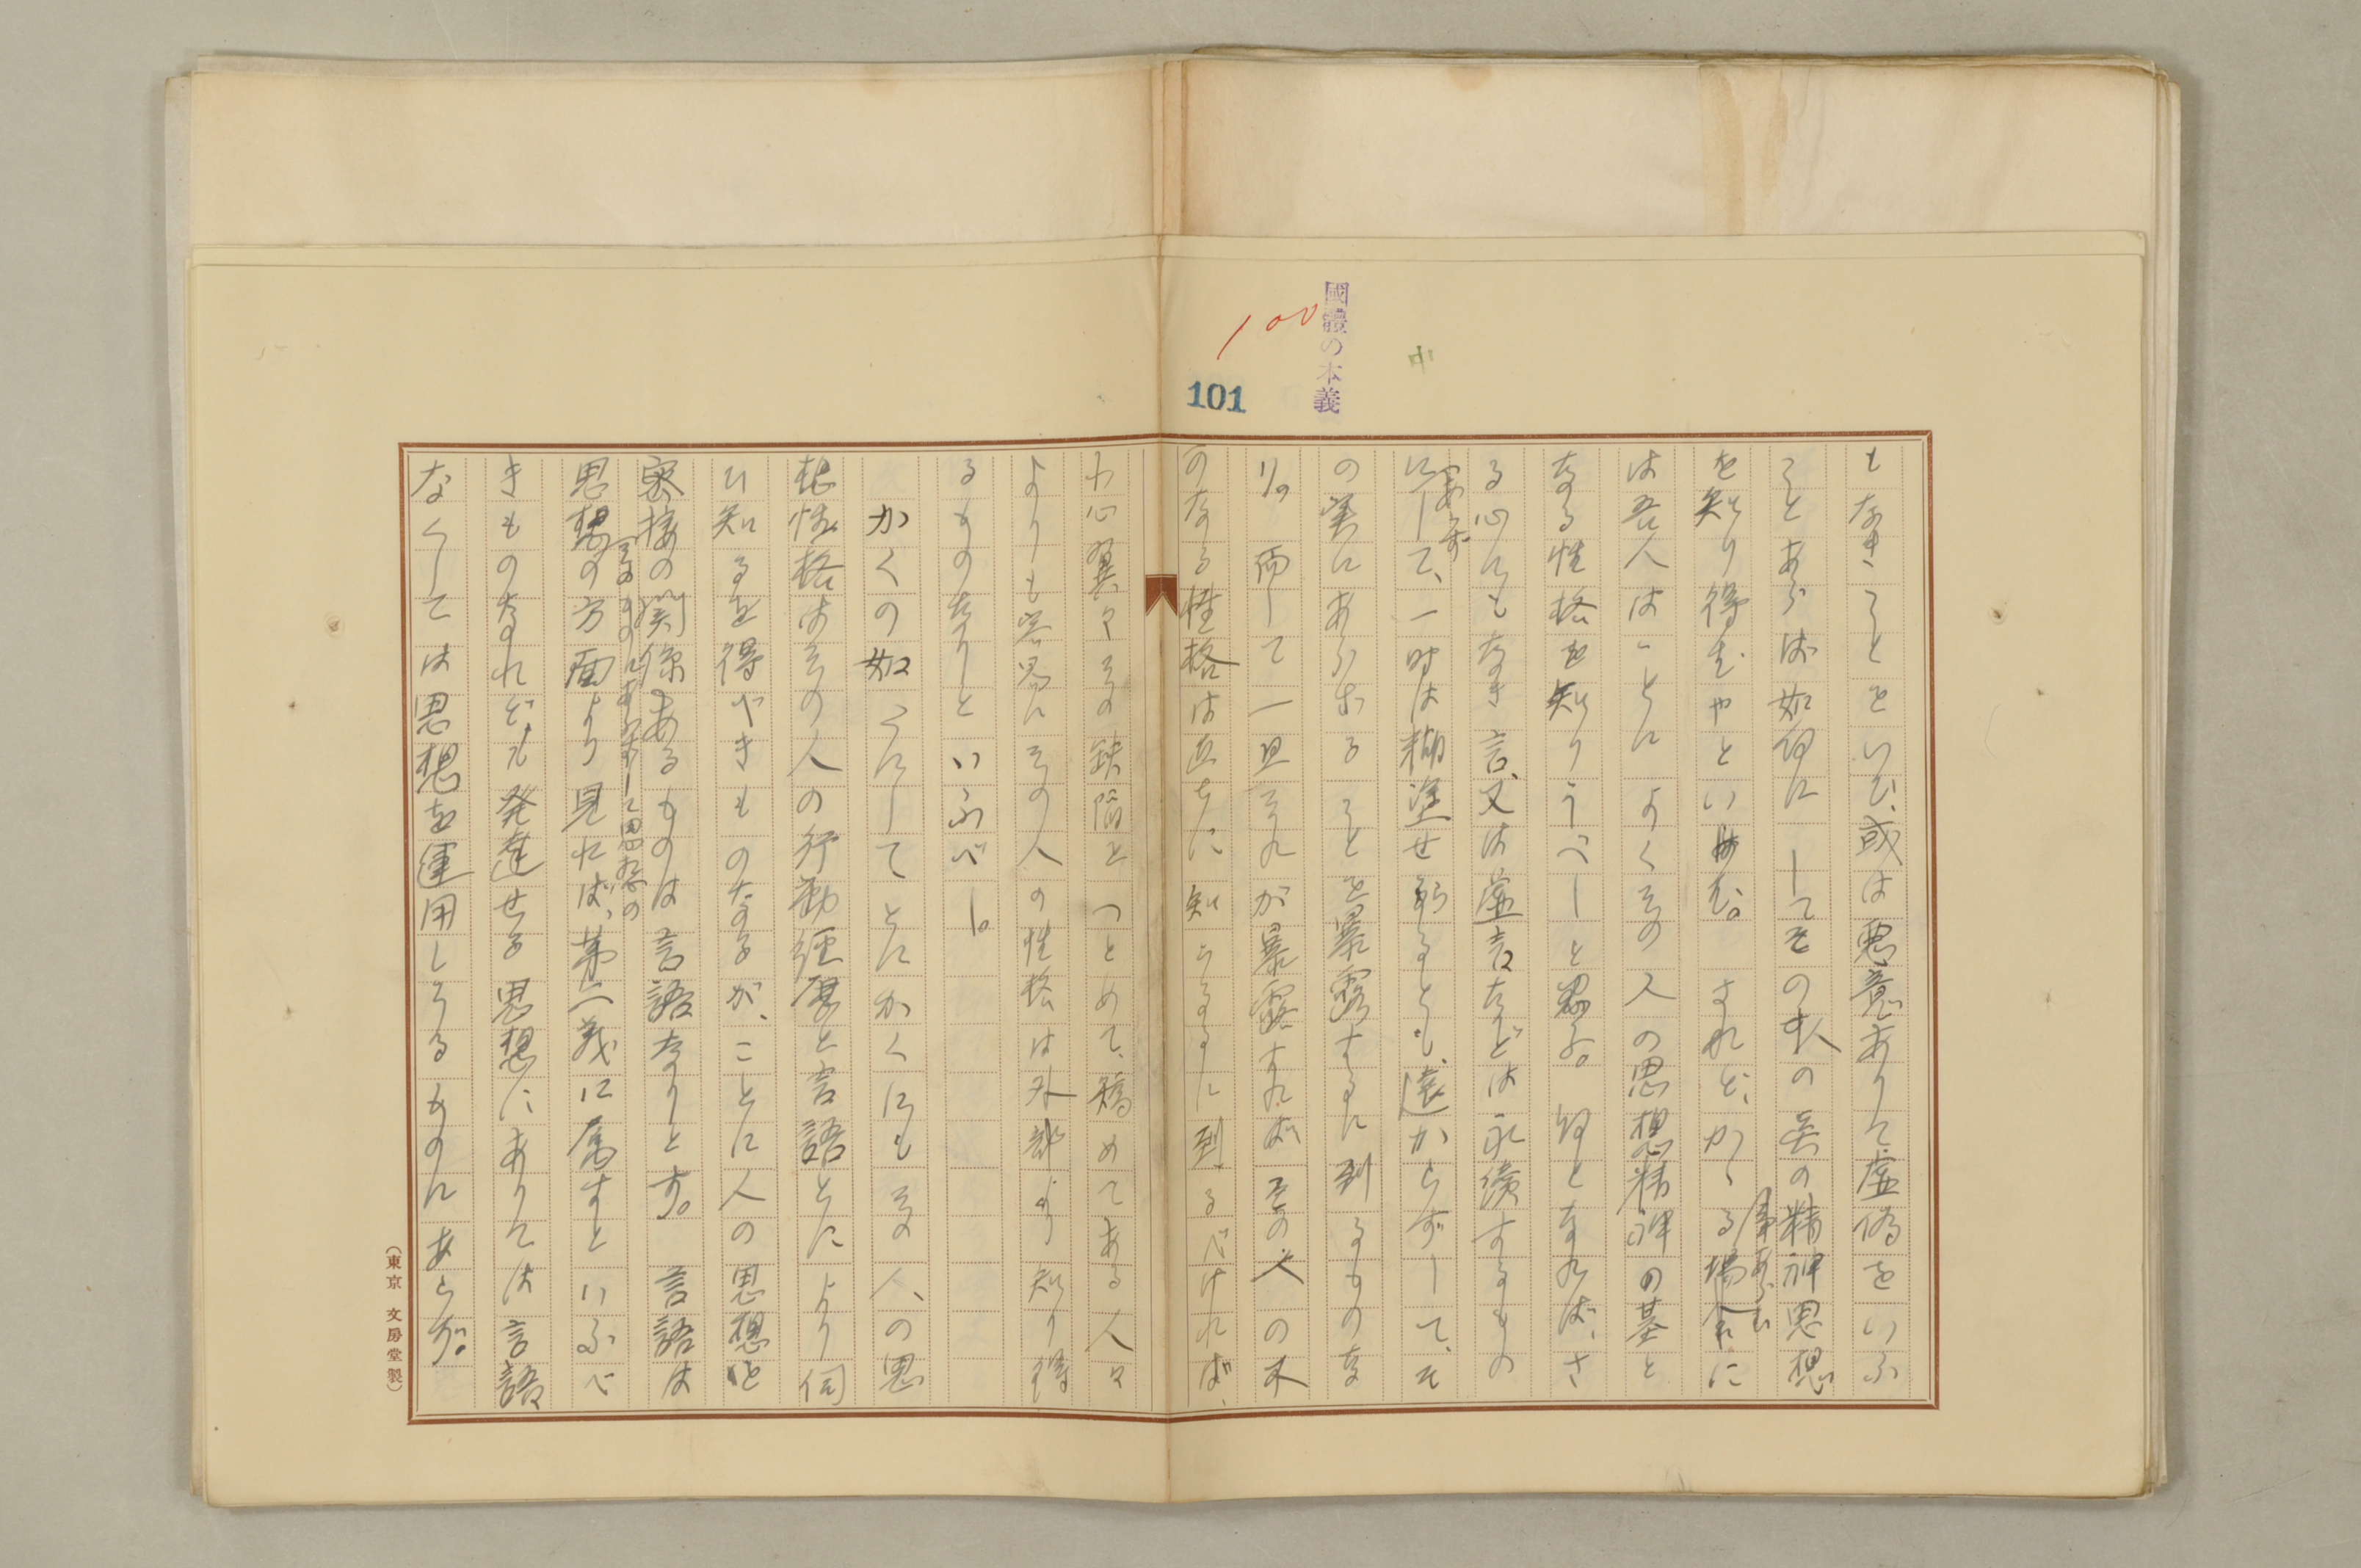 國體の本義
100
101
中
もなきことをいひ、或は悪意ありて虚偽をいふ
ことあらば如何にしてその人の真の精神思想
を知り得むやといはむ。されど、かゝる場合に
事あらむ
は吾人はことによくその人の思想精神の基と
なる性格を知りうべしと思ふ。何となれば、さ
る心にもなき言又は虚言などは永續するもの
にして、一時は糊塗せ得るとも、遠からずして、そ
あらず
の實にあらざることを暴露するに到るものな
り。而して一旦それが暴露すればその人の本
のなる性格は直ちに知らるるに到るべければ、
わ心翼々その缺陥をつとめて、矯めてある人々
よりも容易にその人の性格は外部より知り得
るものなりといふべし。
かくの如くにしてとにかくにもその人の思
想性格はその人の行動經歴と言語とにより伺
ひ知るを得べきものなるが、ことに人の思想と
密接の関係あるものは言語なりとす。言語は
思想の方面より見れば、第二義に属すといふべ
きものなれども発達せる思想にありては言語
なくしては思想を運用しうるものにあらず。
(東京 文房堂製)